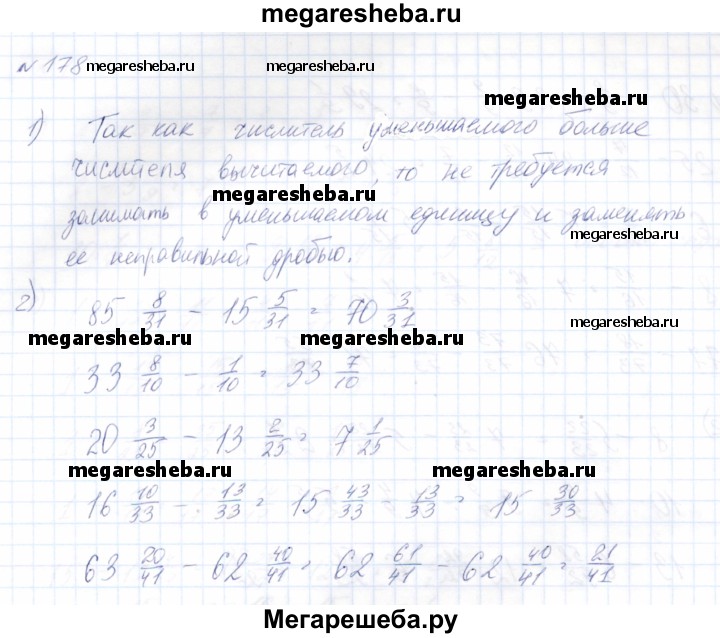 megaresheba.ru
№ 178 megaresheba.ru megaresheba.ru
megaresheba.ru
1) Так как числитель уменьшаемого больше
числителя вычитаемого, то не требуется
megaresheba.ru
занимать в уменьшаемом единицу и заменять
megaresheba.ru
ее неправильной дробью.
2) 85 8/31 - 15 5/31 = 70 3/31
megaresheba.ru megaresheba.ru megaresheba.ru
33 8/10 - 1/10 = 33 7/10
20 3/25 - 13 2/25 = 7 1/25
megaresheba.ru megaresheba.ru
16 10/33 - 13/33 = 15 43/33 - 13/33 = 15 30/33
63 20/41 - 62 40/41 = 62 61/41 - 62 40/41 = 21/41
Мегарешеба.ру